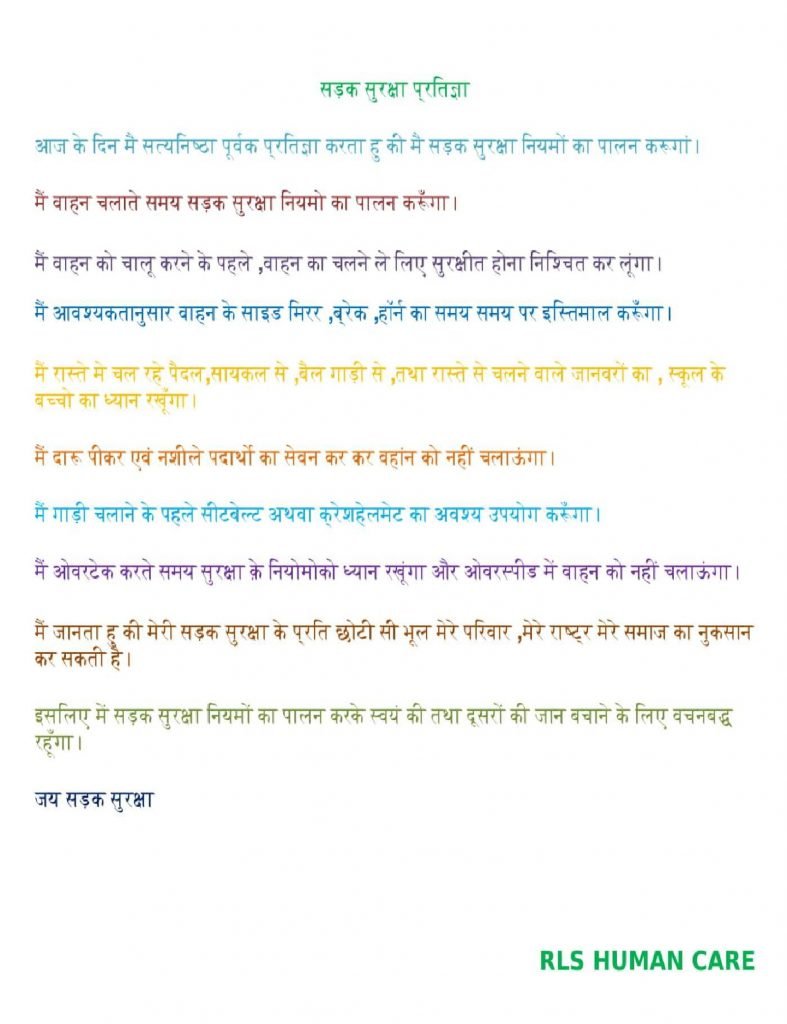 सड़क सुरक्षा प्रतिज्ञा
आज के दिन मै सत्यनिष्ठा पूर्वक प्रतिज्ञा करता हु की मै सड़क सुरक्षा नियमों का पालन करूगां।
मैं वाहन चलाते समय सड़क सुरक्षा नियमो का पालन करूँगा।
मैं वाहन को चालू करने के पहले ,वाहन का चलने ले लिए सुरक्षीत होना निश्चित कर लूंगा।
मैं आवश्यकतानुसार वाहन के साइड मिरर ,ब्रेक ,हॉर्न का समय समय पर इस्तिमाल करूँगा।
मैं रास्ते मे चल रहे पैदल,सायकल से ,बैल गाड़ी से ,तथा रास्ते से चलने वाले जानवरों का , स्कूल के
बच्चो का ध्यान रखूँगा।
मैं दारू पीकर एवं नशीले पदार्थो का सेवन कर कर वहांन को नहीं चलाऊंगा।
मैं गाड़ी चलाने के पहले सीटबेल्ट अथवा क्रेशहेलमेट का अवश्य उपयोग करूँगा।
मैं ओवरटेक करते समय सुरक्षा के नियोमोको ध्यान रखूंगा और ओवरस्पीड में वाहन को नहीं चलाऊंगा।
मैं जानता हु की मेरी सड़क सुरक्षा के प्रति छोटी सी भूल मेरे परिवार ,मेरे राष्ट्र मेरे समाज का नुकसान
कर सकती है।
इसलिए में सड़क सुरक्षा नियमों का पालन करके स्वयं की तथा दूसरों की जान बचाने के लिए वचनबद्ध
रहूँगा।
जय सड़क सुरक्षा
RLS HUMAN CARE